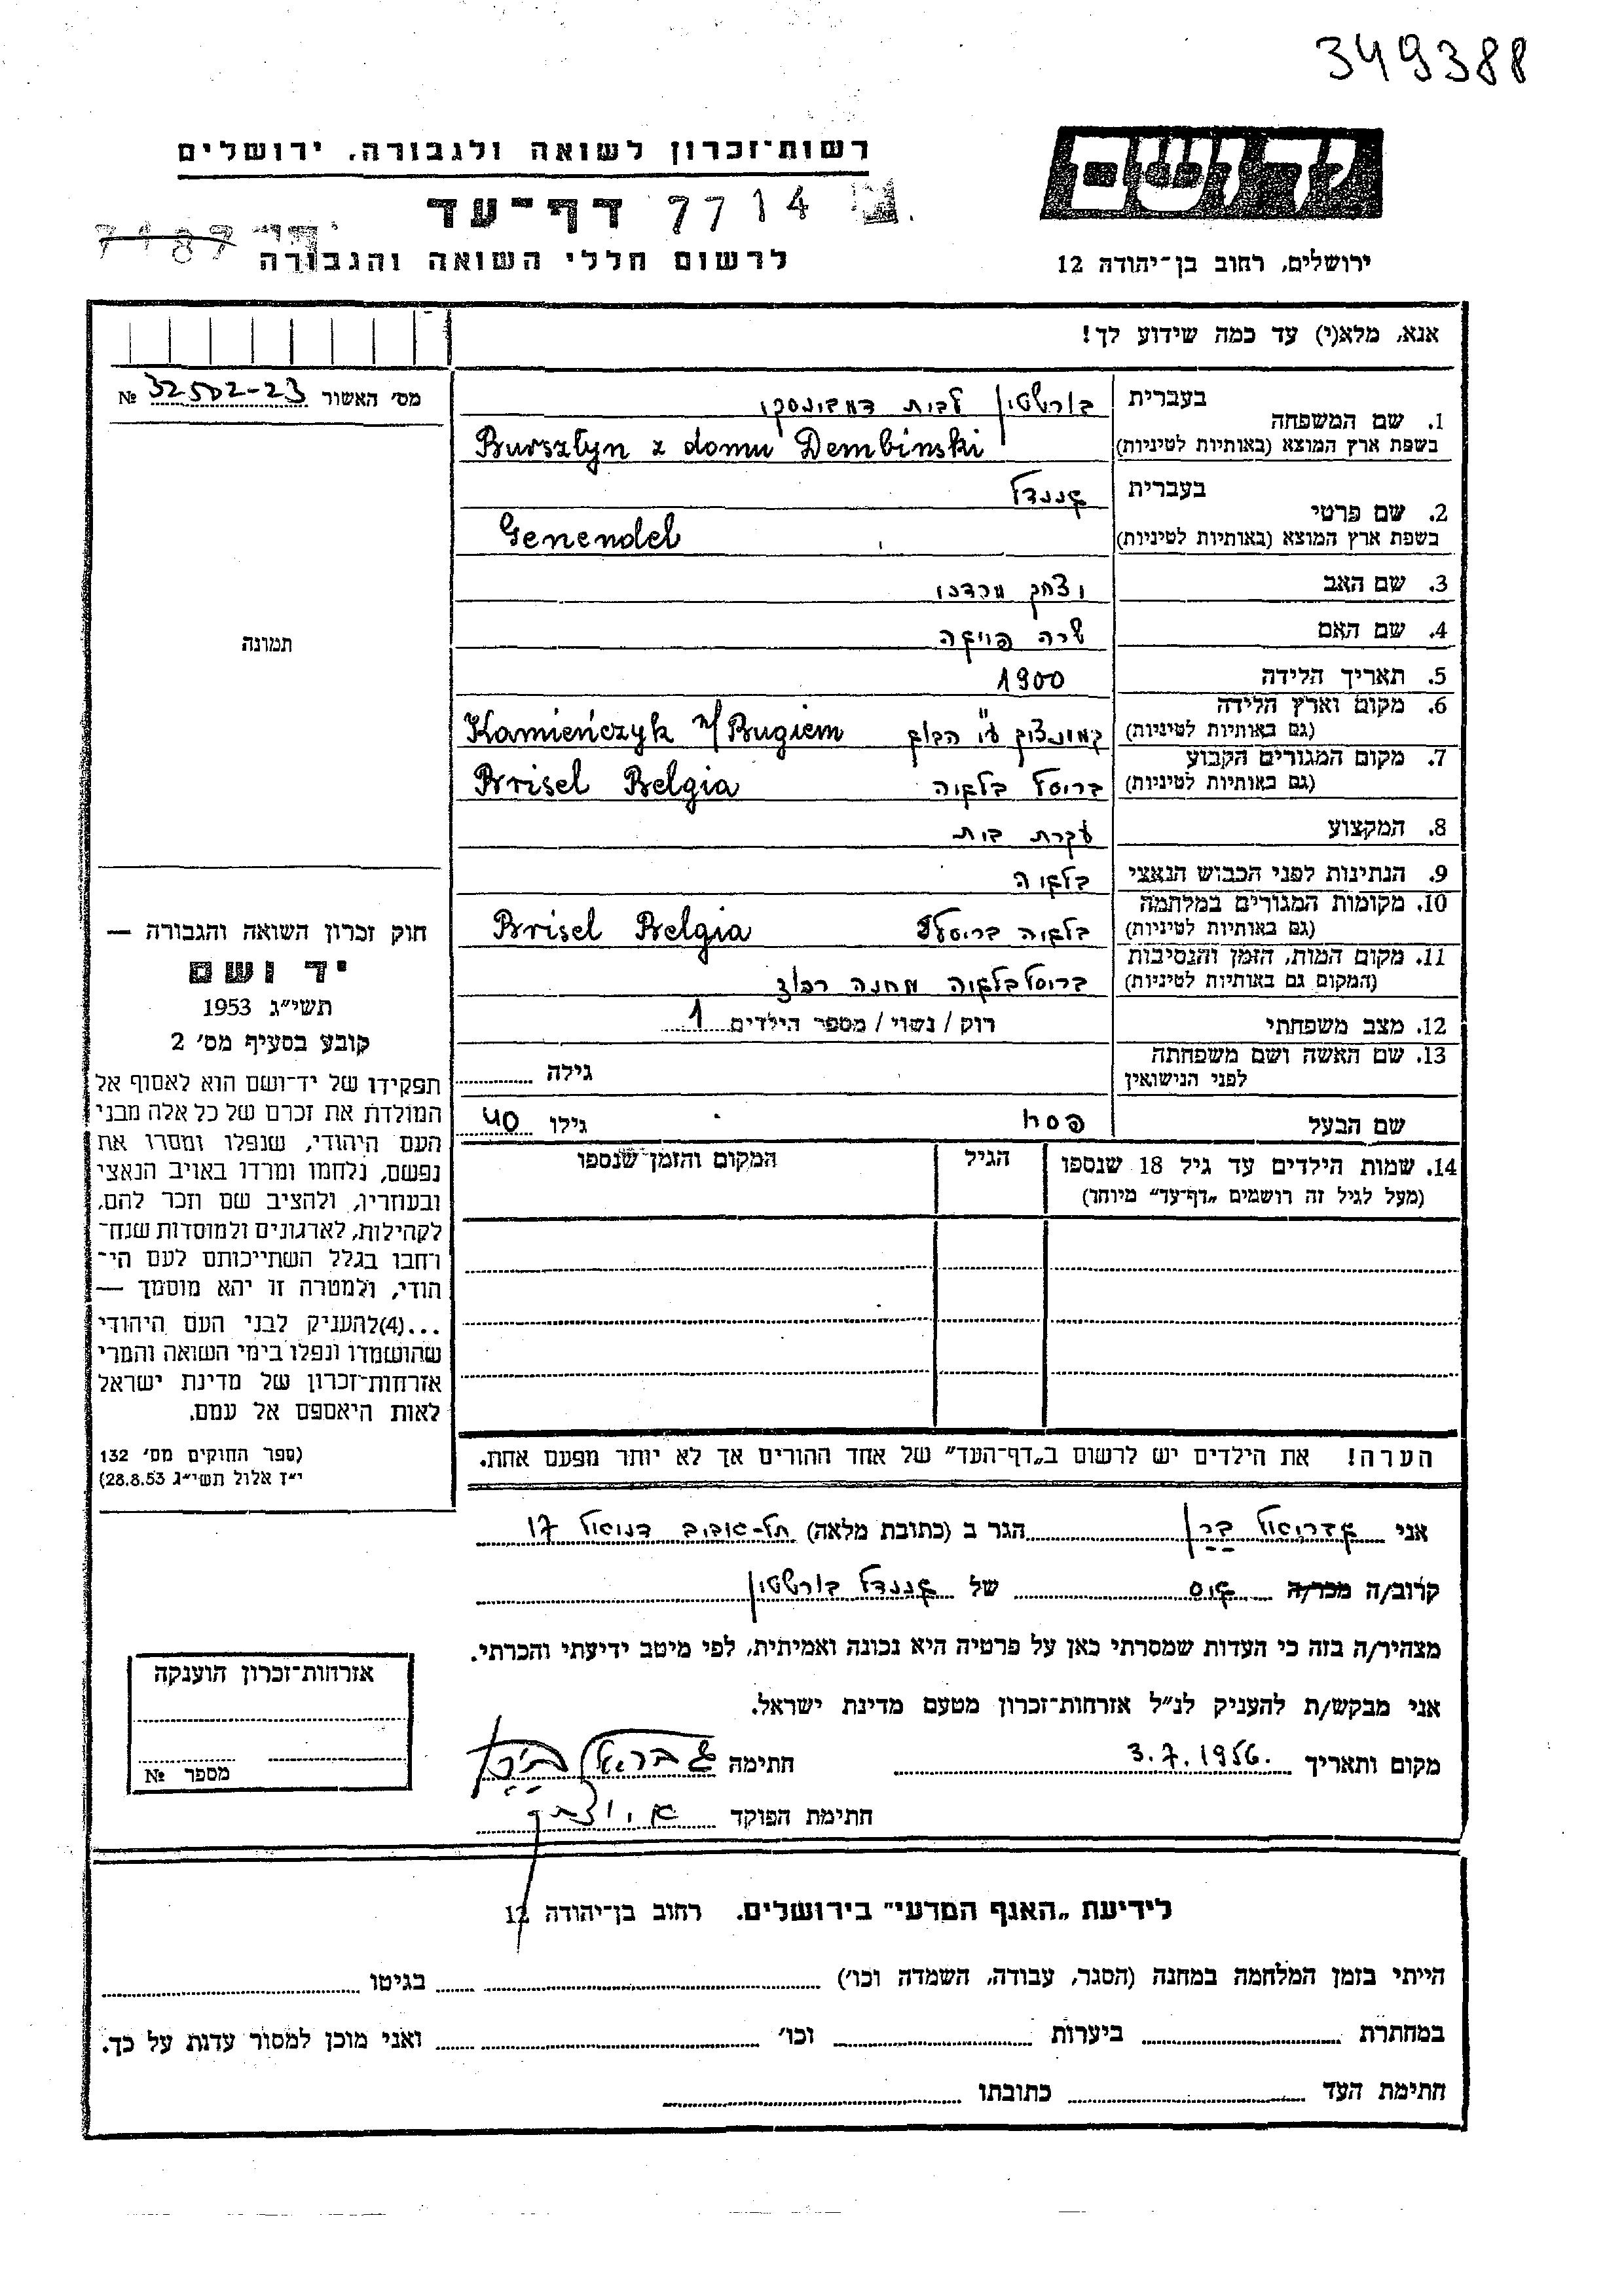 349388
רשות־זכרון לשואה ולגבורה, ירושלים
דף־עד 7714
7187
לרשום חללי השואה והגבורה
יד ושם
ירושלים, רחוב בן־יהודה 12
אנא, מלא(י) עד כמה שידוע לך!
מס׳ האשור № 32502-23
תמונה
1. שם המשפחה
בעברית בורשטין לבית דמבינסקי
בשפת ארץ המוצא (באותיות לטיניות) Bursztyn z domu Dembinski
2. שם פרטי
בעברית גננדל
בשפת ארץ המוצא (באותיות לטיניות) Genendel
3. שם האב יצחק מרדכי
4. שם האם שרה פייגה
5. תאריך הלידה 1900
6. מקום וארץ הלידה
(גם באותיות לטיניות) קמינצוק ע"י הבוג Kamieńczyk n/Bugiem
7. מקום המגורים הקבוע
(גם באותיות לטיניות) בריסל בלגיה Brisel Belgia
8. המקצוע עקרת בית
9. הנתינות לפני הכבוש הנאצי בלגיה
10. מקומות המגורים במלחמה
(גם באותיות לטיניות) בלגיה בריסל Brisel Belgia
11. מקום המות, הזמן והנסיבות
(המקום גם באותיות לטיניות) בריסל בלגיה מחנה רכוז
12. מצב משפחתי רוק / נשוי / מספר הילדים 1
13. שם האשה ושם משפחתה
לפני הנישואין גילה
שם הבעל פסח גילו 40
14. שמות הילדים עד גיל 18 שנספו הגיל המקום והזמן שנספו
(מעל לגיל זה רושמים „דף־עד״ מיוחד)
הערה! את הילדים יש לרשום ב„דף־העד״ של אחד ההורים אך לא יותר מפעם אחת.
חוק זכרון השואה והגבורה —
יד ושם
תשי״ג 1953
קובע בסעיף מס׳ 2
תפקידו של יד־ושם הוא לאסוף אל
המולדת את זכרם של כל אלה מבני
העם היהודי, שנפלו ומסרו את
נפשם, נלחמו ומרדו באויב הנאצי
ובעוזריו, ולהציב שם וזכר להם,
לקהילות, לארגונים ולמוסדות שנח־
רבו בגלל השתייכותם לעם הי־
הודי, ולמטרה זו יהא מוסמך —
...(4)להעניק לבני העם היהודי
שהושמדו ונפלו בימי השואה והמרי
אזרחות־זכרון של מדינת ישראל
לאות היאספם אל עמם.
(ספר החוקים מס׳ 132
י״ז אלול תשי״ג 28.8.53)
אני גבריאל בירן הגר ב (כתובת מלאה) תל-אביב דניאל 17
קרוב/ה מכר/ה גיס של גננדל בורשטין
מצהיר/ה בזה כי העדות שמסרתי כאן על פרטיה היא נכונה ואמיתית, לפי מיטב ידיעתי והכרתי.
אני מבקש/ת להעניק לנ״ל אזרחות־זכרון מטעם מדינת ישראל.
מקום ותאריך 3.7.1956. חתימה גבריאל בירן
חתימת הפוקד
אזרחות־זכרון הוענקה
מספר №
לידיעת „האגף המדעי״ בירושלים. רחוב בן־יהודה 12
הייתי בזמן המלחמה במחנה (הסגר, עבודה, השמדה וכו׳) בגיטו
במחתרת ביערות וכו׳ ואני מוכן למסור עדות על כך.
חתימת העד כתובתו